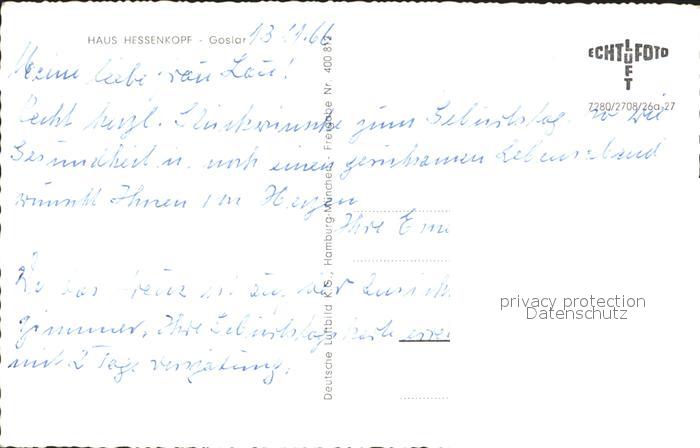 HAUS HESSENKOPF - Goslar 13.11.66
Meine liebe Frau Lau!
Recht herzl. Glückwünsche zum Geburtstag
Gesundheit u. noch einen geruhsamen Lebensabend
wünscht Ihnen von Herzen
Ihre
Das Kreuz ist auf der Ansicht
Zimmer. Ihre Geburtstagskarte
mit 2 Tage verspätung.
Deutsche Luftbild K.G., Hamburg-München - Freigabe Nr. 400 812
ECHT LUFT FOTO
7280/2708/26a-27
privacy protection
Datenschutz